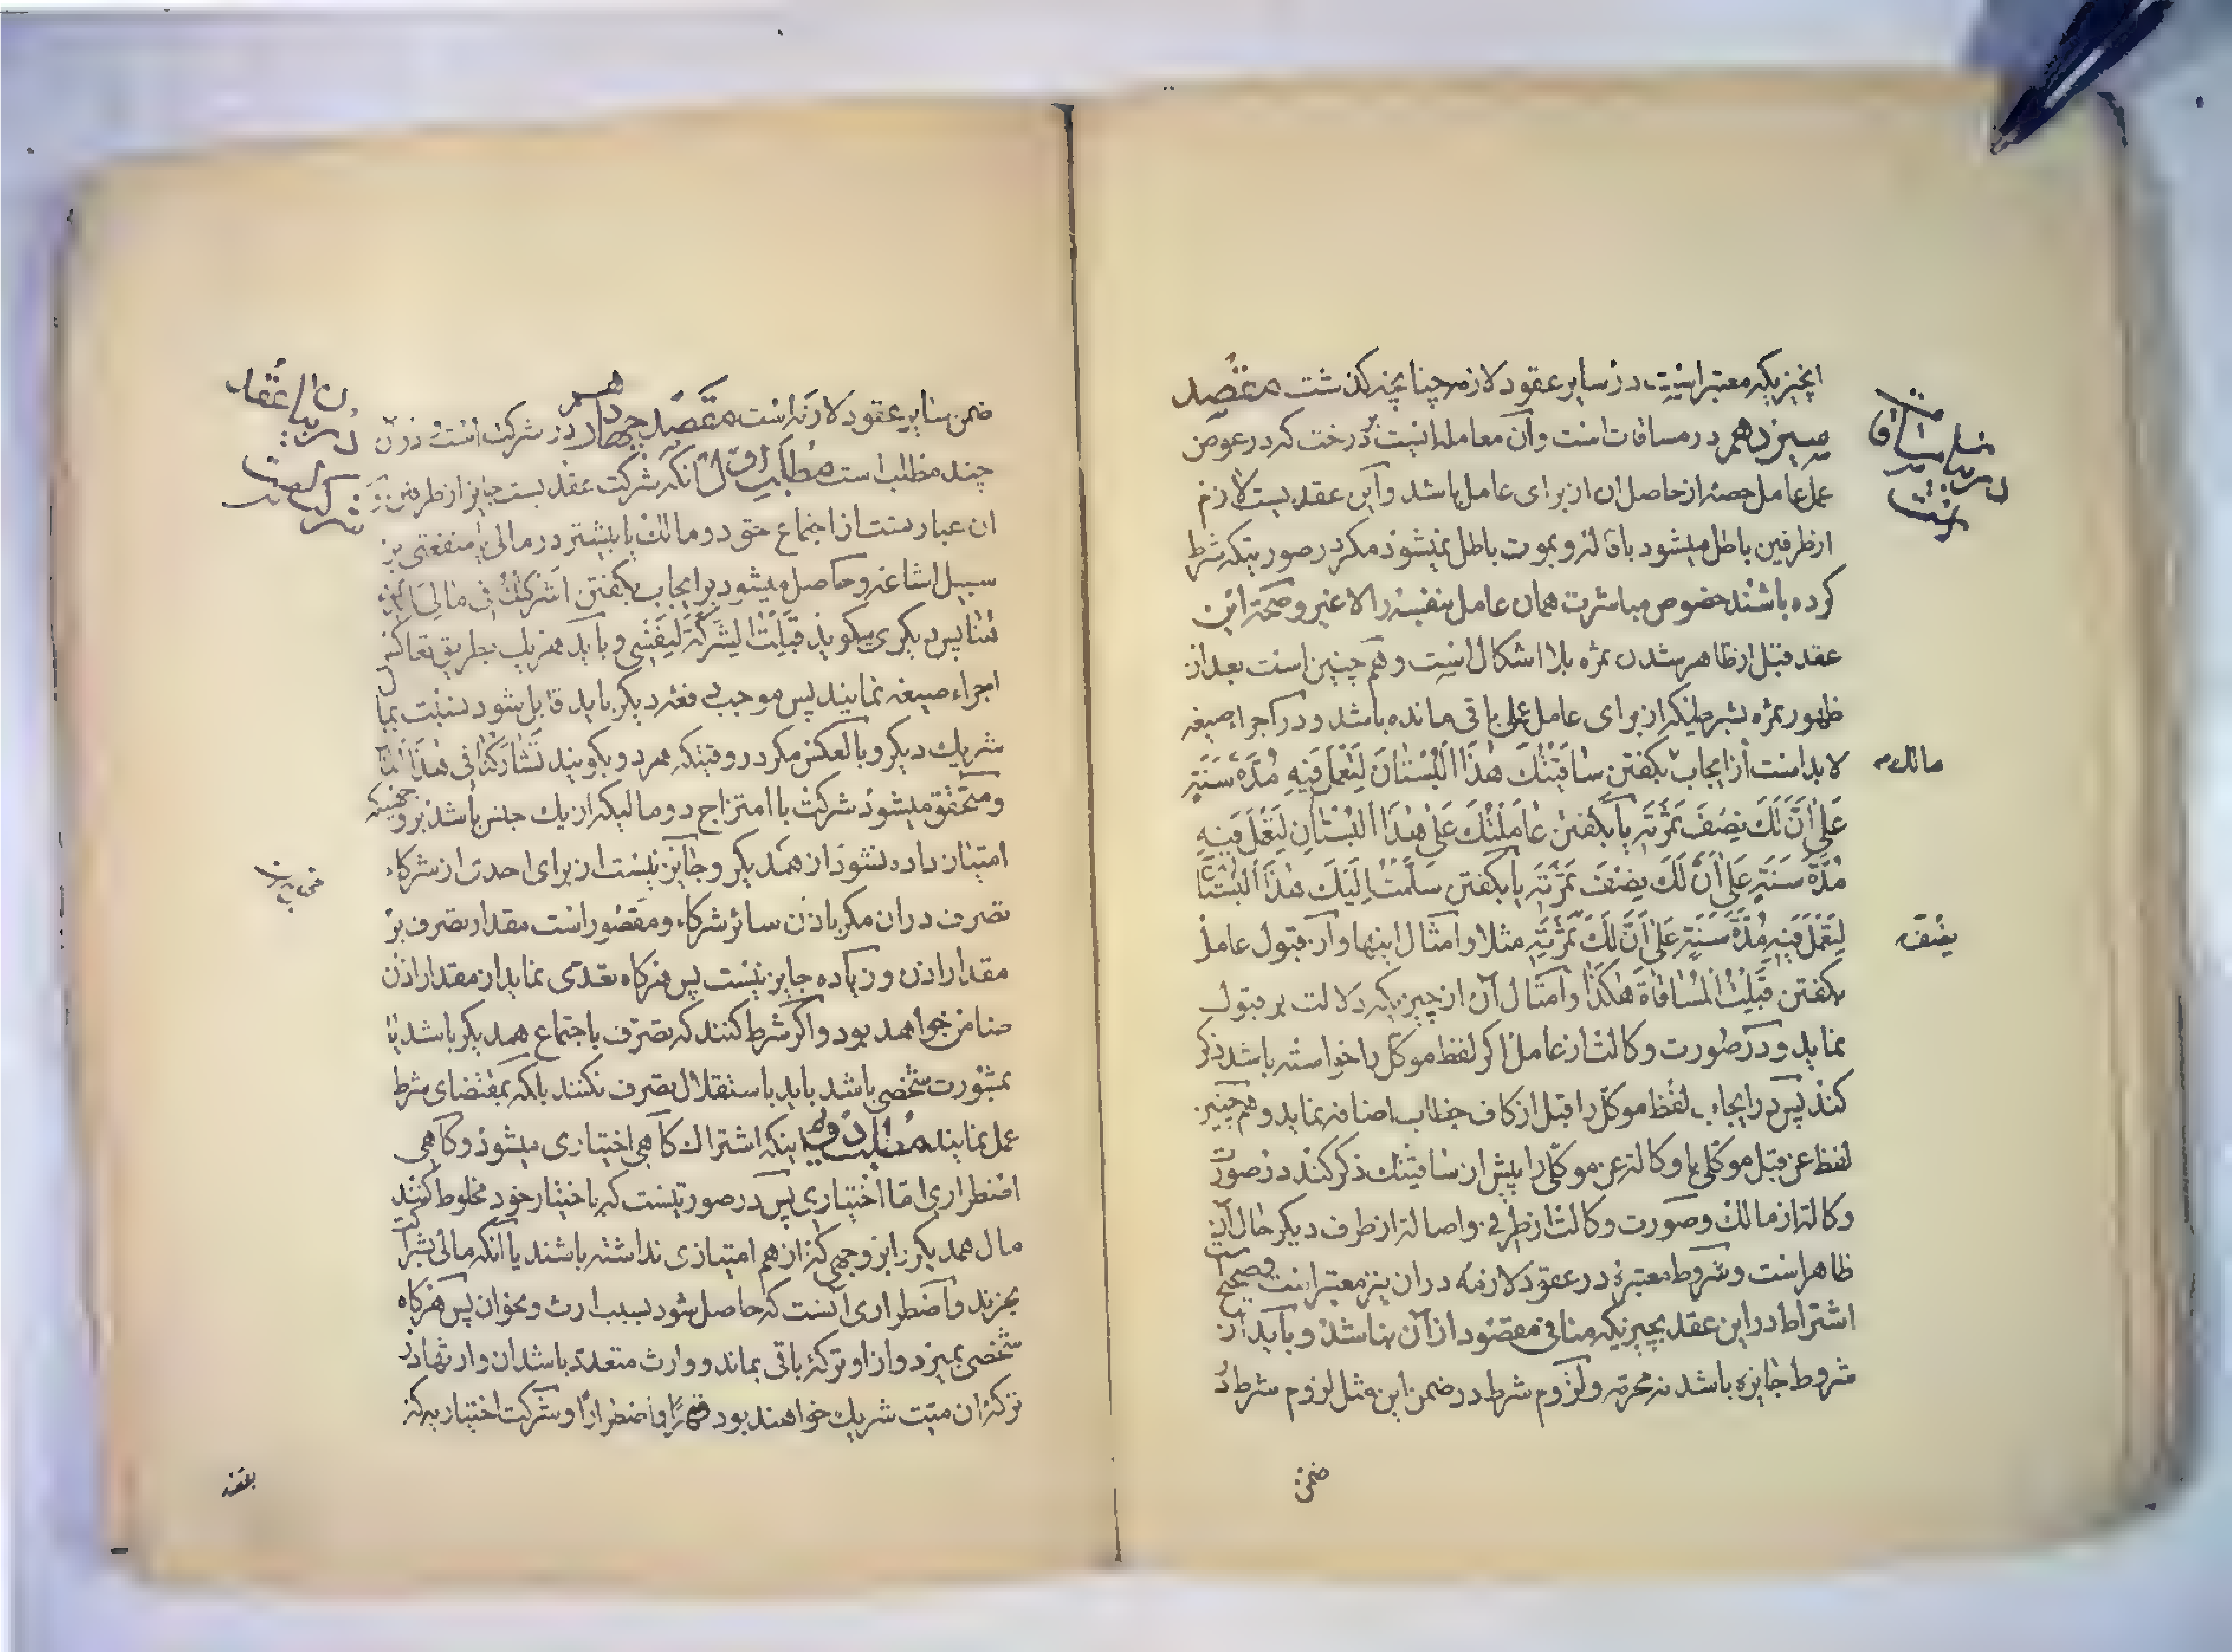 انچیزیکه معتبر است در سایر عقود لازمه چنانچه گذشت مقصد
سیزدهم در مساقات است و آن معامله ایست بر درخت که در عوض
عمل عامل حصه از حاصل ان از برای عامل باشد و این عقدیست لازم
از طرفین باطل میشود باقاله و بموت باطل نمیشود مکر در صورتیکه شرط
کرده باشند خصوص مباشرت همان عامل بنفسه را لا غیر و صحة این
عقد قبل از ظاهر شدن ثمره بلا اشکال است و هم چنین است بعد از
ظهور ثمره بشرطیکه از برای عامل عملی باقی مانده باشد و در اجراء صیغه
لابد است از ایجاب بکفتن ساقَیْتُکَ هٰذَا الْبُسْتٰانَ لِتَعْمَلَ فیهِ مُدَّةَ سَنَةٍ
مالک
عَلیٰ اَنَّ لَکَ نِصْفَ ثَمَرَتِهِ یا بکفتن عٰامَلْتُکَ عَلیٰ هٰذَا الْبُسْتٰانِ لِتَعْمَلَ فیهِ
مُدَّةَ سَنَةٍ عَلیٰ اَنَّ لَکَ نِصْفَ ثَمَرَتِهِ یا بکفتن سَلَّمْتُ اِلَیْکَ هٰذَا الْبُسْتٰانَ
لِتَعْمَلَ فیهِ مُدَّةَ سَنَةٍ عَلیٰ اَنَّ لَکَ ثَمَرَتِهِ مثلا و امثال اینها و از قبول عامل
نصف
بکفتن قَبِلْتُ الْمُسٰاقٰاةَ هٰکَذٰا و امثال آن از چیزیکه دلالت بر قبول
نماید و در صورت وکالت از عامل اکر لفظ موکل را خواسته باشد ذکر
کند پس در ایجاب لفظ موکل را قبل از کاف خطاب اضافه نماید و هم چنین
لفظ عن قبل موکلی یا وکالة عن موکلی را پیش از ساقیتک ذکر کند در صورت
وکالة از مالک و صورت وکالت از طرفی و اصالة از طرف دیکر حال آن
ظاهر است و شروط معتبره در عقود لازمه در ان نیز معتبر است و صحیح است
اشتراط در این عقد بچیزیکه منافی مقصود از آن نباشد و باید از
شروط جایزه باشد نه محرمه و لزوم شرط در ضمن این مثل لزوم شرط در
ضمن
ضمن سایر عقود لازمه است مقصد چهاردهم در شرکت است در آن
چند مطلب است مطلب اول آنکه شرکت عقدیست جایز از طرفین و
ان عبارتست از اجتماع حق دو مالک یا بیشتر در مالی یا منفعتی بر
سبیل اشاعه و حاصل میشود بر ایجاب بکفتن اشرکتک فی مالی
پس دیکری میکوید قَبِلْتُ الشِّرْکَةَ لِنَفْسی و باید هر یک بطریق تعاکس
اجراء صیغه نمایند پس موجب دفعه دیکر باید قابل شود نسبت بمال
شریک دیکر و بالعکس مکر در وقتیکه هر دو بکویند تَشٰارَکْنٰا فی هٰذَا الْمٰالِ
و متحقق میشود شرکت با امتزاج دو مالیکه از یک جنس باشد بر وجهیکه
امتیاز داده نشود از همدیکر و جایز نیست از برای احدی از شرکاء
تصرف در ان مکر باذن سائر شرکاء و مقصور است مقدار تصرف بر
مقدار اذن و زیاده جایز نیست پس هرکاه تعدی نماید از مقدار اذن
ضامن خواهد بود و اکر شرط کنند که تصرف باجتماع همدیکر باشد یا
بمشورت شخصی باشد باید باستقلال تصرف نکنند بلکه بمقتضای شرط
عمل نمایند مطلب دویم اینکه اشتراک کاهی اختیاری میشود و کاهی
اضطراری اما اختیاری پس در صورتیست که باختیار خود مخلوط کنند
مال همدیکر را بر وجهی که از هم امتیازی نداشته باشند یا آنکه مالی بشراکت
بخرند و اضطراری آنست که حاصل شود بسبب ارث و نحو ان پس هرکاه
شخصی بمیرد و از او ترکهٔ باقی بماند و وارث متعدد باشد ان وارثها در
ترکهٔ ان میت شریک خواهند بود قهرًا و اضطرارًا و شرکت اختیاریه که
بعقد